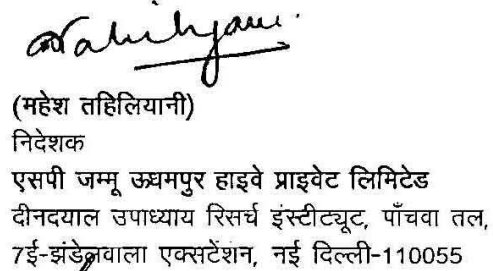 (महेश तहिलियानी)
निदेशक
एसपी जम्मू ऊधमपुर हाइवे प्राइवेट लिमिटेड
दीनदयाल उपाध्याय रिसर्च इंस्टीट्यूट, पाँचवा तल,
7ई-झंडेलवाला एक्सटेंशन, नई दिल्ली-110055